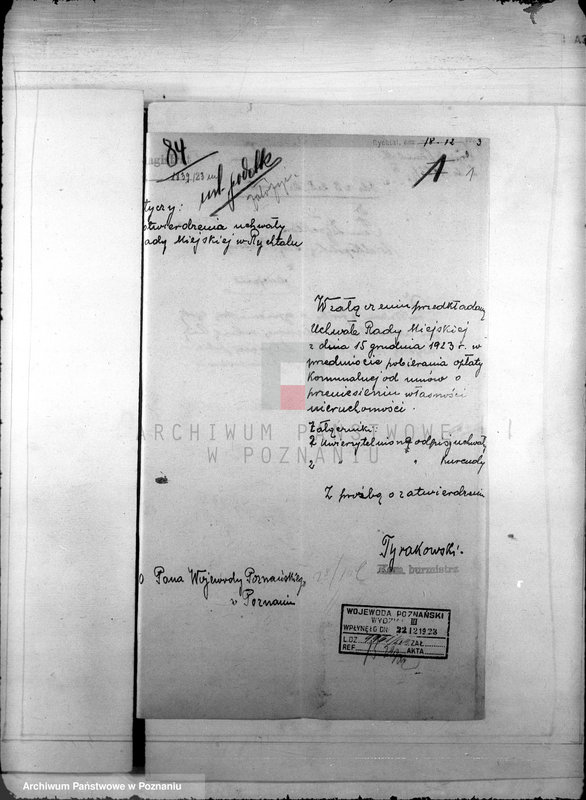 Rychtal, dnia 18-12 3
84
1139/23
1
1
tyczy:
twierdzenia uchwały
ady Miejskiej w Rychtalu
W załączeniu przedkładam
Uchwałę Rady Miejskiej
z dnia 15 grudnia 1923 r. w
przedmiocie pobierania opłaty
komunalnej od umów o
przeniesieniu własności
nieruchomości.
Załączniki
2 uwierzytelnione odpisy uchwały
2 " "
Z prośbą o zatwierdzenie
Tyrakowski.
Kom. burmistrz
o Pana Wojewody Poznańskiego
w Poznaniu
WOJEWODA POZNAŃSKI
WYDZIAŁ III
WPŁYNĘŁO DN. 22 12 1923
L.DZ. ZAŁ.
REF. AKTA
ARCHIWUM PAŃSTWOWE
W POZNANIU
Archiwum Państwowe w Poznaniu